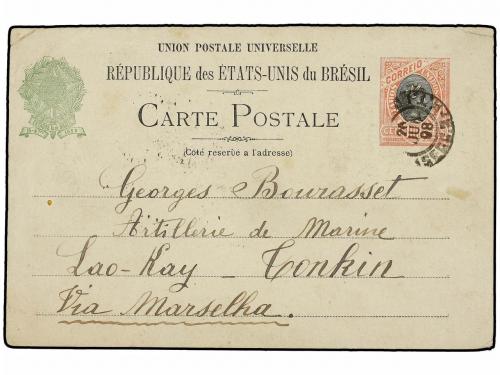 UNION POSTALE UNIVERSELLE
RÉPUBLIQUE des ÉTATS-UNIS du BRÉSIL
CORREIO
CARTE POSTALE
26
JU
98
(Côté reservè a l'adresse)
Georges Bourasset
Artillerie de Marine
Lao-Kay _ Tonkin
Via Marselha.